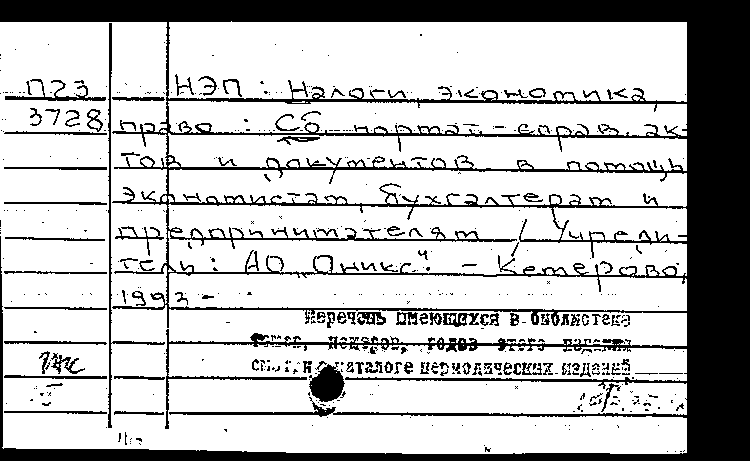 П23 НЭП : Налоги, экономика,
3728 право : Сб. нормат.-справ. ак-
тов и документов в помощь
экономистам, бухгалтерам и
предпринимателям / Учреди-
тель: АО „Оникс“. – Кемерово,
1993 –
Перечень имеющихся в библиотеке
томов, номеров, годов этого издания
смотри в каталоге периодических изданий